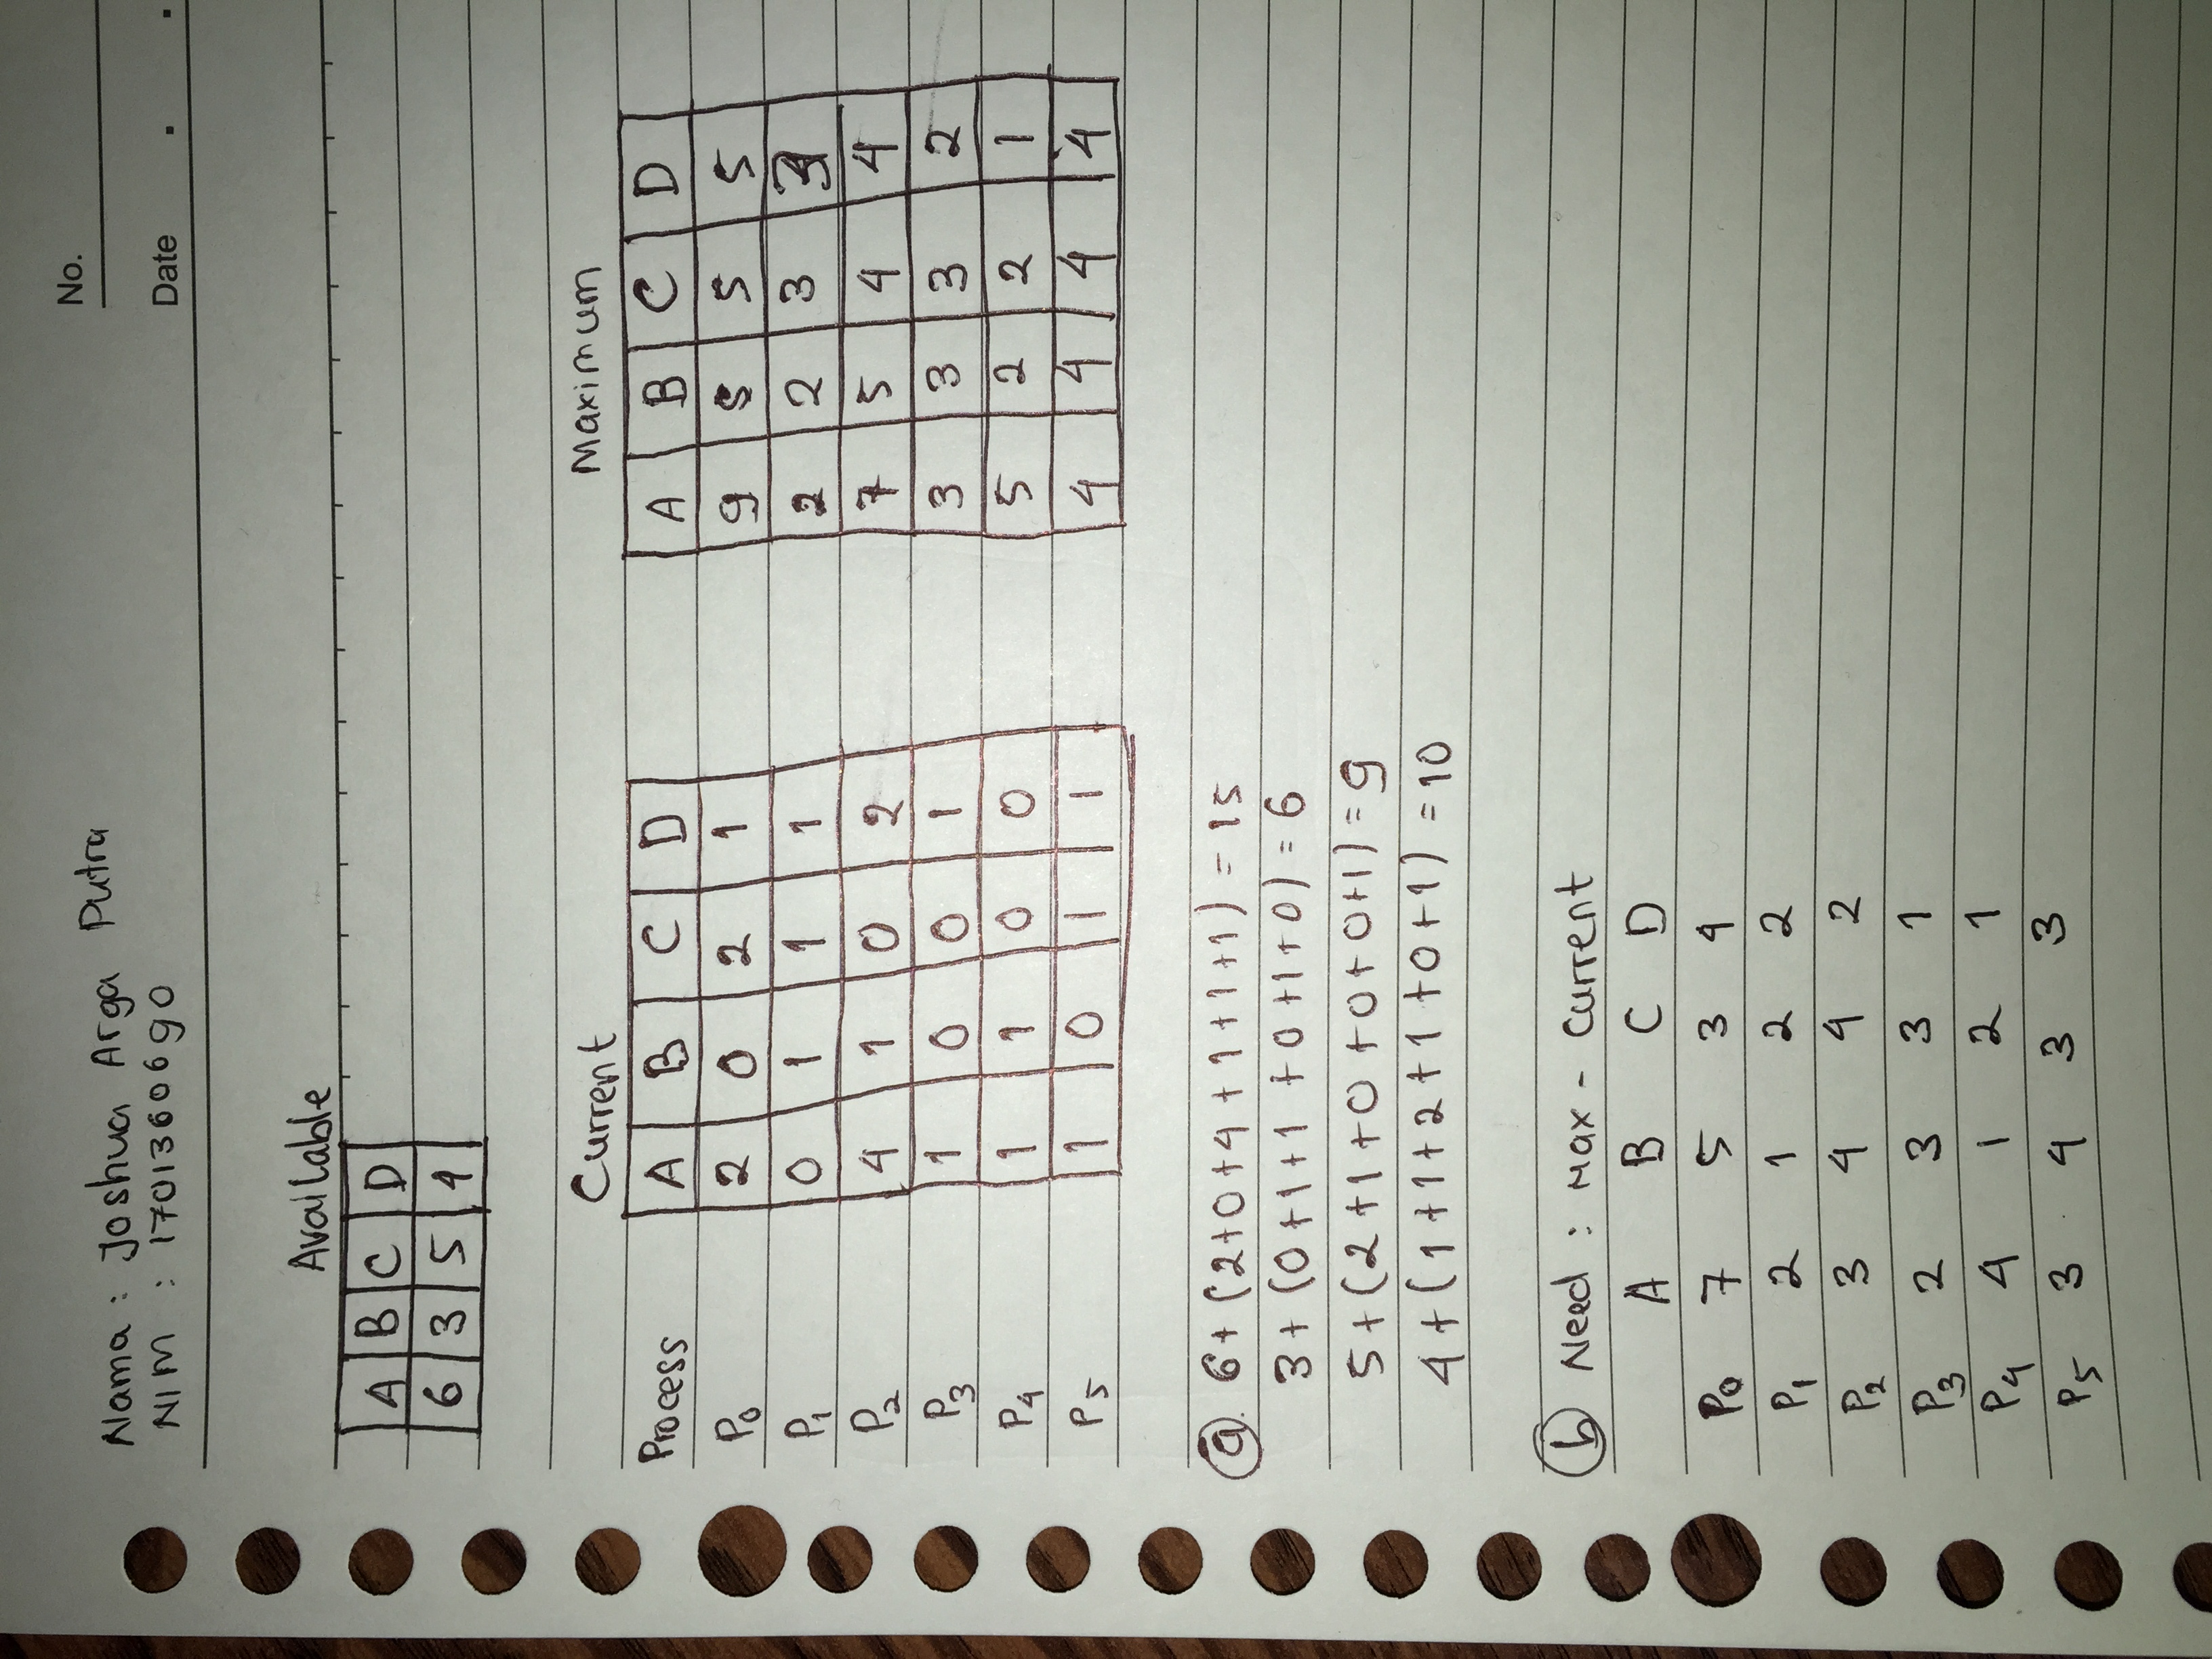 No.
Date . .
Nama : Joshua Arga Putra
NIM : 1701360690
Available
A B C D
6 3 5 4
Current Maximum
Process A B C D A B C D
P0 2 0 2 1 9 5 5 5
P1 0 1 1 1 2 2 3 3
P2 4 1 0 2 7 5 4 4
P3 1 0 0 1 3 3 3 2
P4 1 1 0 0 5 2 2 1
P5 1 0 1 1 4 4 4 4
a. 6 + (2+0+4+1+1+1) = 15
3 + (0+1+1+0+1+0) = 6
5 + (2+1+0+0+0+1) = 9
4 + (1+1+2+1+0+1) = 10
b Need : Max - Current
A B C D
P0 7 5 3 4
P1 2 1 2 2
P2 3 4 4 2
P3 2 3 3 1
P4 4 1 2 1
P5 3 4 3 3